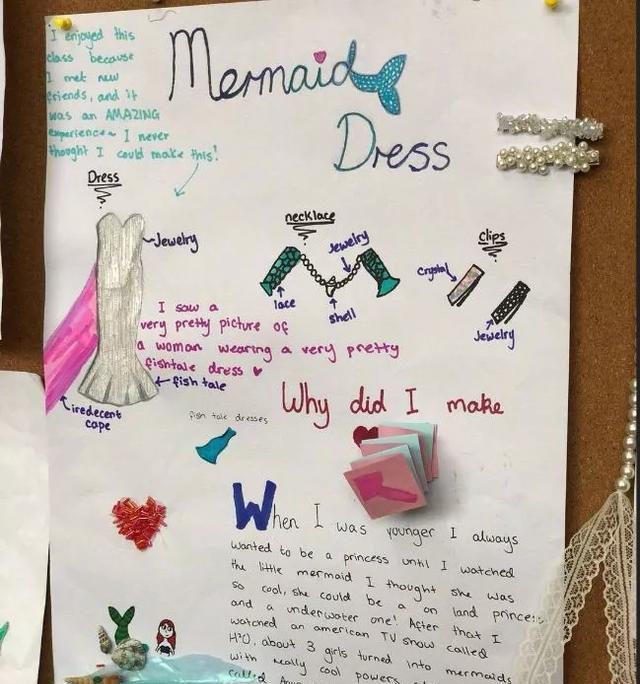 I enjoyed this
class because
I met new
friends, and it
was an AMAZING
experience. I never
thought I could make this!
Mermaid
Dress
Dress
Jewelry
necklace
Jewelry
lace
shell
clips
crystal
Jewelry
I saw a
very pretty picture of
a woman wearing a very pretty
fishtale dress
fish tale
iredecent
cape
fish tale dresses
Why did I make
When I was younger I always
wanted to be a princess until I watched
the little mermaid I thought she was
so cool, she could be a on land princess
and a underwater one! After that I
watched an american TV show called
H2O, about 3 girls turned into mermaids
with really cool powers
called